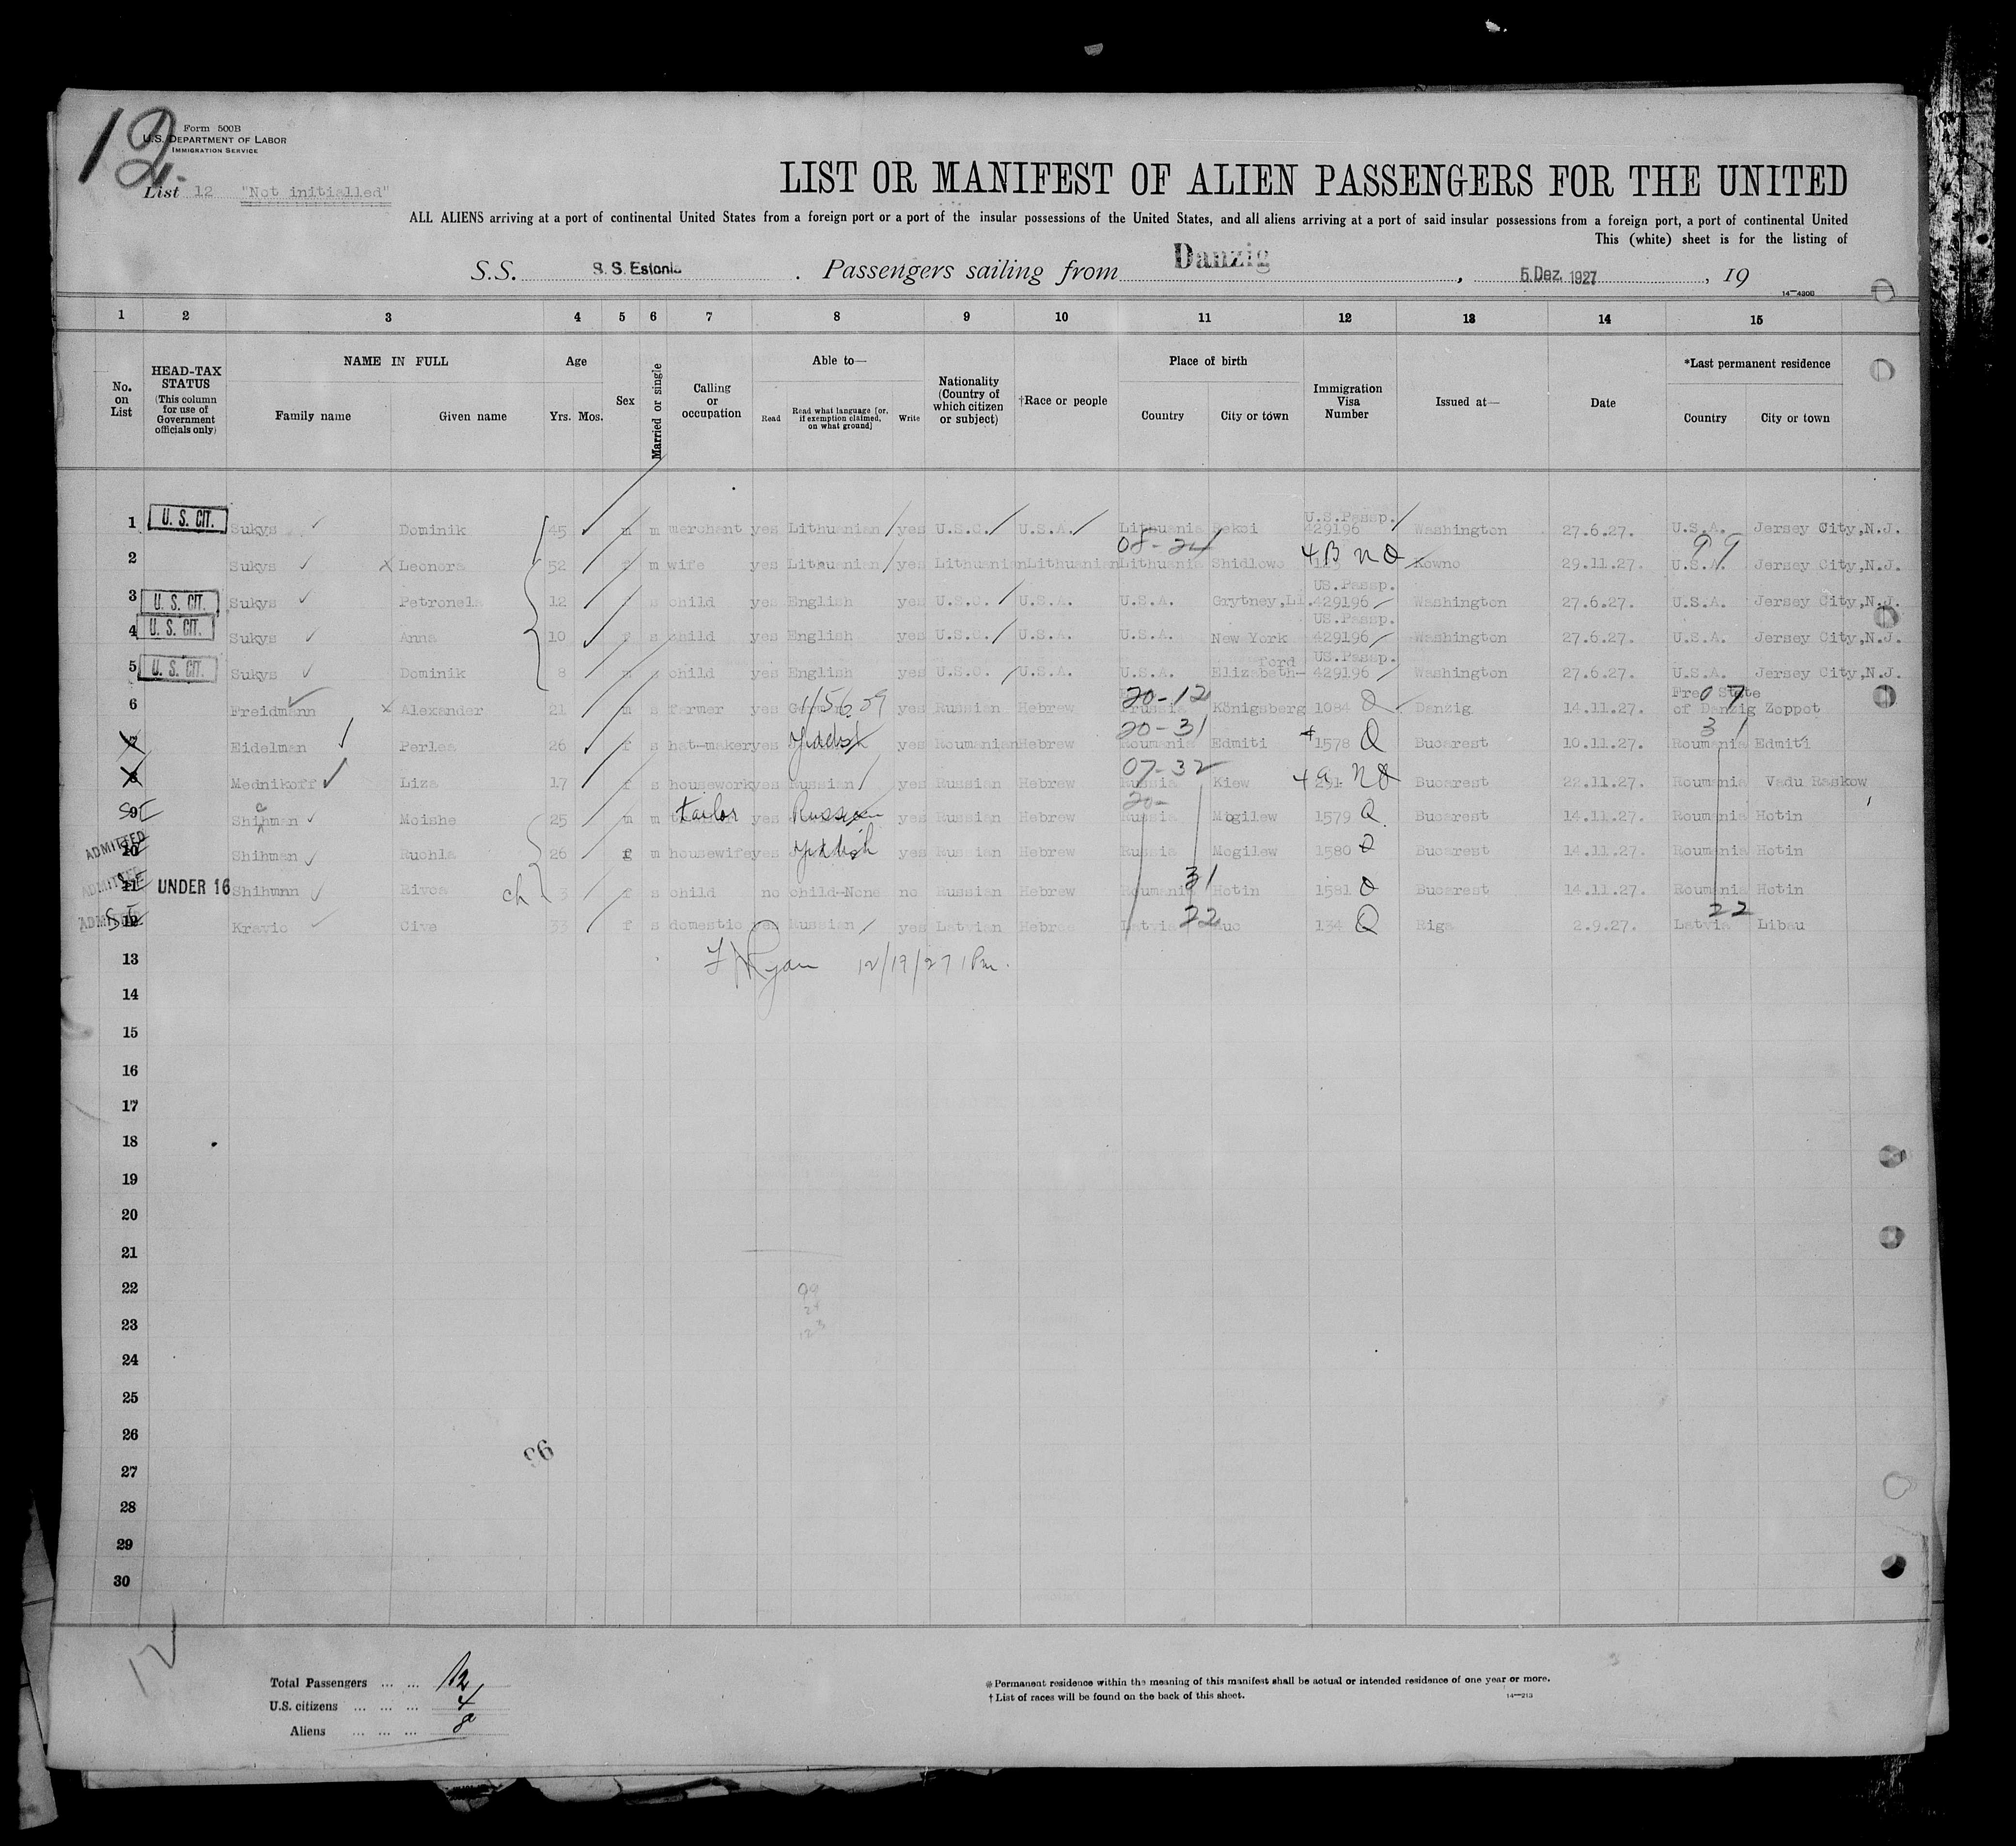 12.
Form 500B
U.S. DEPARTMENT OF LABOR
IMMIGRATION SERVICE
List 12 "Not initialled"
LIST OR MANIFEST OF ALIEN PASSENGERS FOR THE UNITED
ALL ALIENS arriving at a port of continental United States from a foreign port or a port of the insular possessions of the United States, and all aliens arriving at a port of said insular possessions from a foreign port, a port of continental United
This (white) sheet is for the listing of
S.S. S. S. Estonia . Passengers sailing from Danzig , 5. Dez. 1927 , 19
14—4200
1 2 3 4 5 6 7 8 9 10 11 12 13 14 15
No. on List
HEAD-TAX STATUS (This column for use of Government officials only)
NAME IN FULL Family name Given name
Age Yrs. Mos.
Sex
Married or single
Calling or occupation
Able to— Read Read what language [or, if exemption claimed, on what ground] Write
Nationality (Country of which citizen or subject)
†Race or people
Place of birth Country City or town
Immigration Visa Number
Issued at—
Date
*Last permanent residence Country City or town
1 U. S. CIT. Sukys Dominik 45 m m merchant yes Lithuanian yes U.S.C. U.S.A. Lithuania U.S.Passp. 429196 Washington 27.6.27. U.S.A. Jersey City,N.J.
08-24 4B NQ 99
2 Sukys x Leonora 52 f m wife yes Lithuanian yes Lithuanian Lithuanian Lithuania Shidlowo Kowno 29.11.27. U.S.A. Jersey City,N.J.
3 U. S. CIT. Sukys Petronela 12 f s child yes English yes U.S.C. U.S.A. U.S.A. Grytney,Li. US.Passp. 429196 Washington 27.6.27. U.S.A. Jersey City,N.J.
4 U. S. CIT. Sukys Anna 10 f s child yes English yes U.S.C. U.S.A. U.S.A. New York US.Passp. 429196 Washington 27.6.27. U.S.A. Jersey City,N.J.
5 U. S. CIT. Sukys Dominik 8 m s child yes English yes U.S.C. U.S.A. U.S.A. Elizabeth-ford US.Passp. 429196 Washington 27.6.27. U.S.A. Jersey City,N.J.
20-12 07
6 Freidmann x Alexander 21 m s farmer yes German yes Russian Hebrew Königsberg 1084 Q Danzig 14.11.27. Free State of Danzig Zoppot
20-31 31
7 Eidelman Perlea 26 f s hat-maker yes Yiddish yes Roumanian Hebrew Roumania Edmiti 1578 Q Bucarest 10.11.27. Roumania Edmiti
07-32 4a NQ
8 Mednikoff Liza 17 f s housework yes Russian yes Russian Hebrew Russia Kiew 291 Bucarest 22.11.27. Roumania Vadu Raskow
20-
9 SI Shihman Moishe 25 m m tailor yes Russian yes Russian Hebrew Russia Mogilew 1579 Q Bucarest 14.11.27. Roumania Hotin
ADMITTED
10 Shihman Ruchla 26 f m housewife yes Yiddish yes Russian Hebrew Russia Mogilew 1580 Q Bucarest 14.11.27. Roumania Hotin
ADMITTED
11 UNDER 16 Shihman Rivca ch 3 f s child no child-None no Russian Hebrew Roumania 31 Hotin 1581 Q Bucarest 14.11.27. Roumania Hotin
ADMITTED SI
12 Kravic Cive 33 f s domestic yes Russian yes Latvian Hebrew Latvia 22 Auc 134 Q Riga 2.9.27. Latvia 22 Libau
13 Ryan 12/19/27 1 Pm.
14
15
16
17
18
19
20
21
22 99
23
24
25
26
96
27
28
29
30
12
Total Passengers ... ... 12
U.S. citizens ... ... ... 4
Aliens ... ... ... 8
*Permanent residence within the meaning of this manifest shall be actual or intended residence of one year or more.
†List of races will be found on the back of this sheet.
14—213